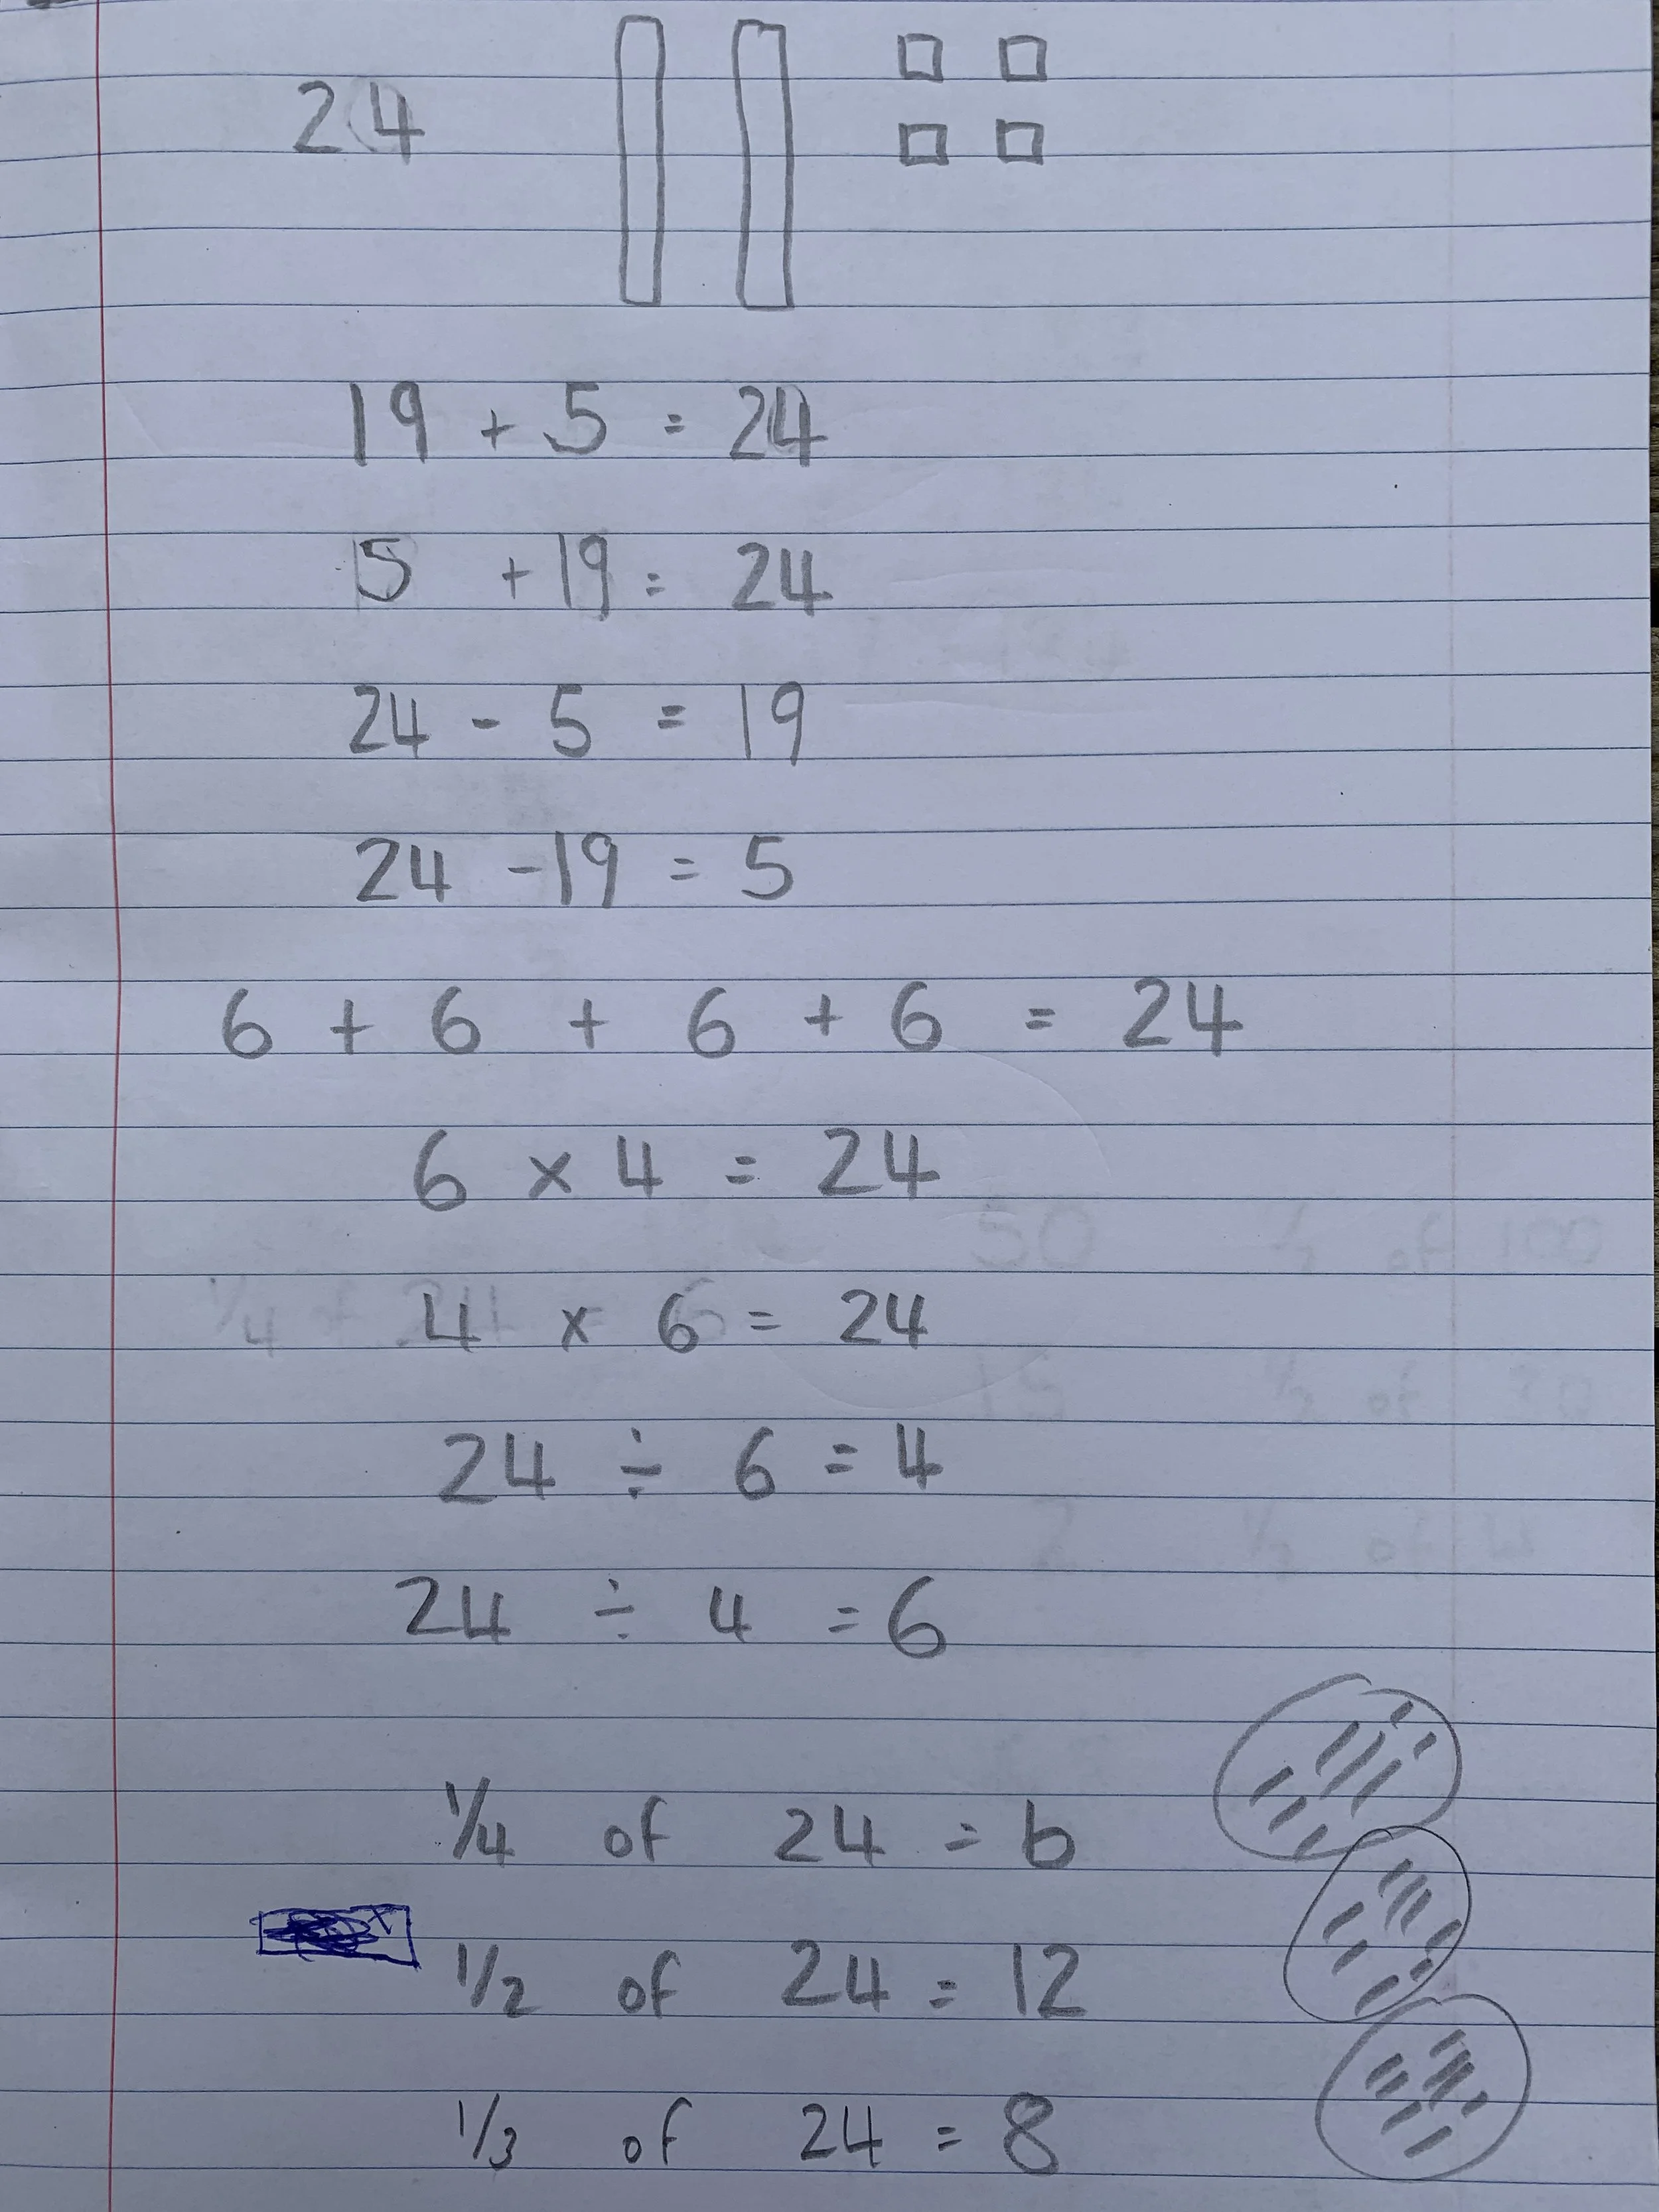 24
19 + 5 = 24
5 + 19 = 24
24 - 5 = 19
24 - 19 = 5
6 + 6 + 6 + 6 = 24
6 x 4 = 24
4 x 6 = 24
24 ÷ 6 = 4
24 ÷ 4 = 6
1/4 of 24 = 6
1/2 of 24 = 12
1/3 of 24 = 8